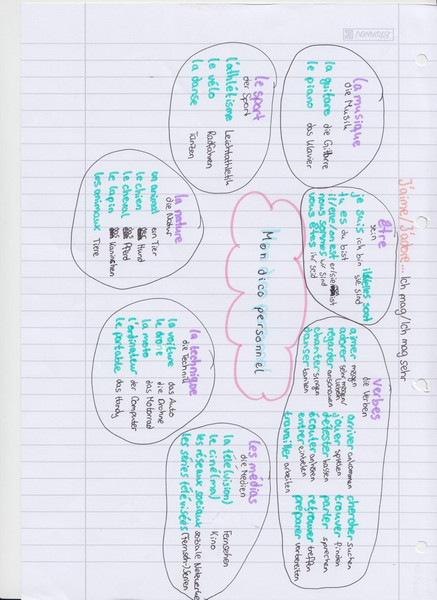 J'aime/J'adore... Ich mag/Ich mag sehr
la musique
die Musik
la guitare die Gitarre
le piano das Klavier
être
sein
je suis ich bin
tu es du bist
il/elle/on est er/sie ist
nous sommes wir sind
vous êtes ihr seid
ils/elles sont
sie sind
verbes
die Verben
aimer mögen
adorer sehr mögen/lieben
regarder anschauen
chanter singen
danser tanzen
arriver ankommen
jouer spielen
détester hassen
écouter anhören
entrer eintreten
travailler arbeiten
chercher suchen
trouver finden
parler sprechen
retrouver treffen
préparer vorbereiten
Mon dico personnel
le sport
der Sport
l'athlétisme Leichtathletik
le vélo Radfahren
la danse Tanzen
la nature
die Natur
un animal ein Tier
le chien Hund
le cheval Pferd
le lapin Kaninchen
les animaux Tiere
la technique
die Technik
la voiture das Auto
le drone die Drohne
la moto das Motorrad
l'ordinateur der Computer
le portable das Handy
les médias
die Medien
la télé(vision) Fernsehen
le ciné(ma) Kino
les réseaux sociaux soziale Netzwerke
les séries télévisées (Fernseh-)Serien